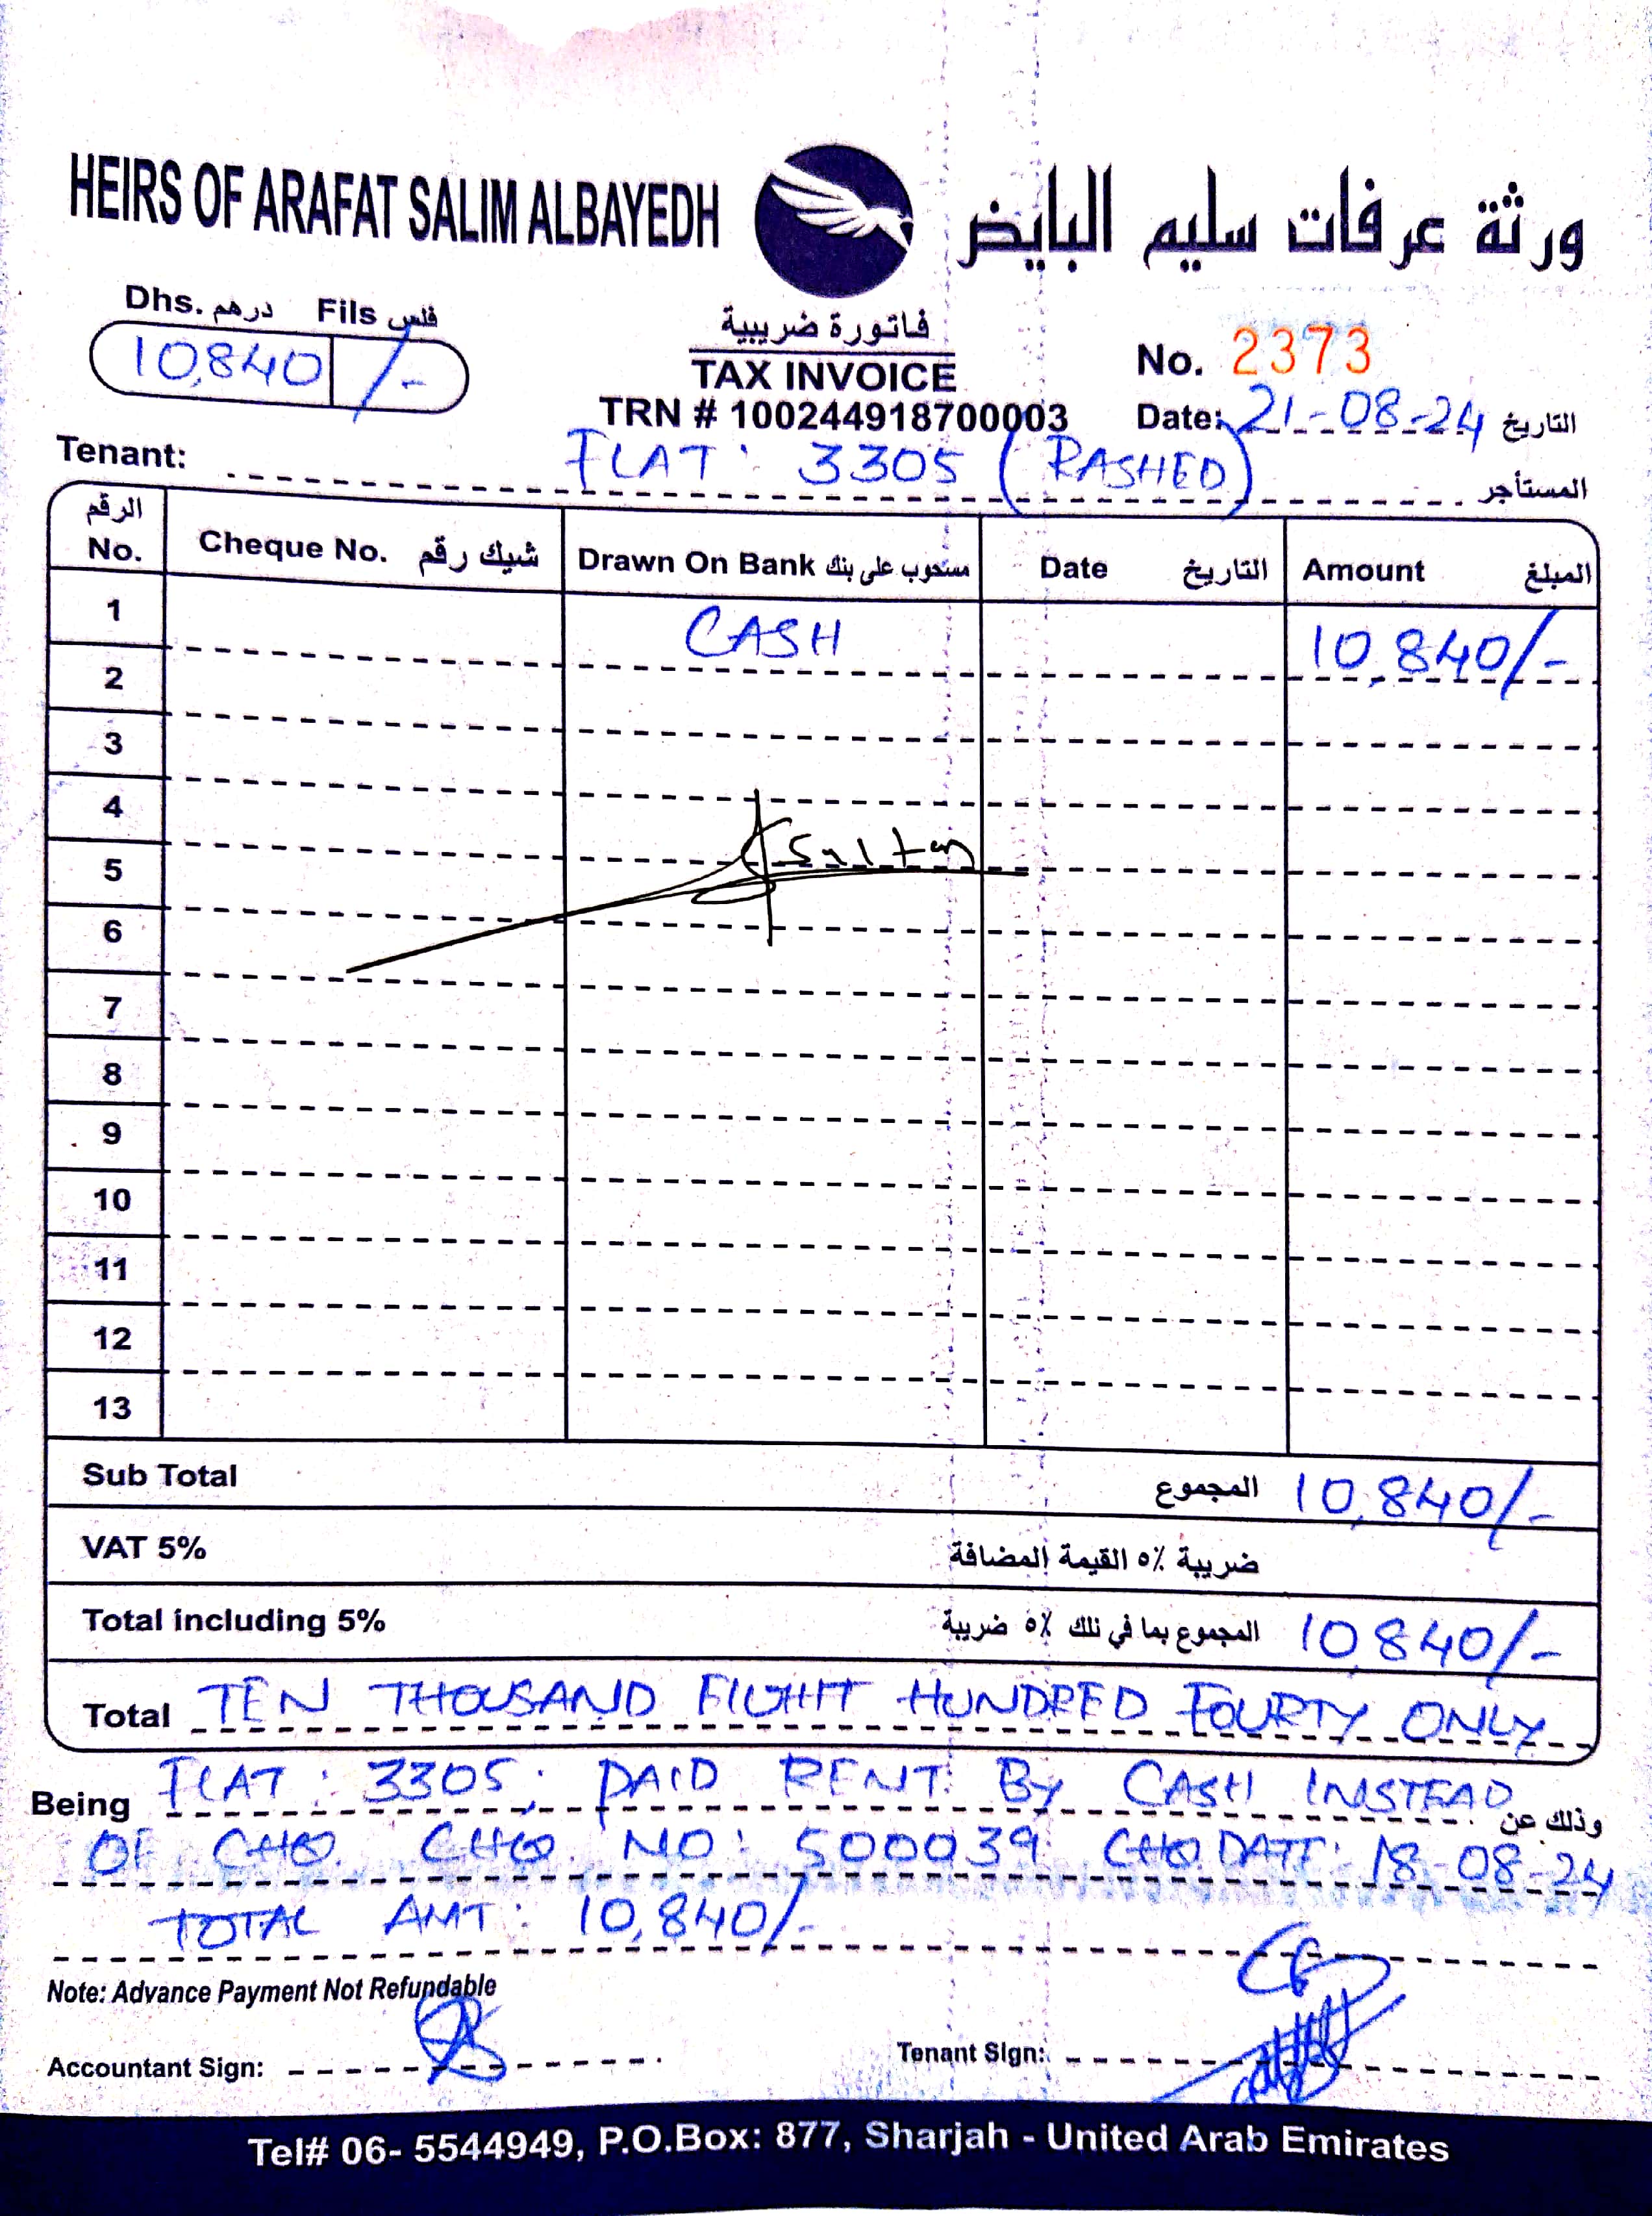 HEIRS OF ARAFAT SALIM ALBAYEDH
ورثة عرفات سليم البايض
Dhs. درهم Fils فلس
10,840 /-
فاتورة ضريبية
TAX INVOICE
TRN # 100244918700003
No. 2373
Date: 21-08-24 التاريخ
Tenant: FLAT: 3305 (RASHED) المستأجر
الرقم No. Cheque No. شيك رقم Drawn On Bank مسحوب على بنك Date التاريخ Amount المبلغ
1 CASH 10,840/-
2
3
4
5 Sultan
6
7
8
9
10
11
12
13
Sub Total المجموع 10,840/-
VAT 5% ضريبة ٥٪ القيمة المضافة
Total including 5% المجموع بما في ذلك ٥٪ ضريبة 10840/-
Total TEN THOUSAND EIGHT HUNDRED FOURTY ONLY
Being FLAT: 3305; PAID RENT BY CASH INSTEAD وذلك عن
OF CHQ. CHQ. NO: 500039 CHQ DATE: 18-08-24
TOTAL AMT: 10,840/-
Note: Advance Payment Not Refundable
Accountant Sign:
Tenant Sign:
Tel# 06- 5544949, P.O.Box: 877, Sharjah - United Arab Emirates